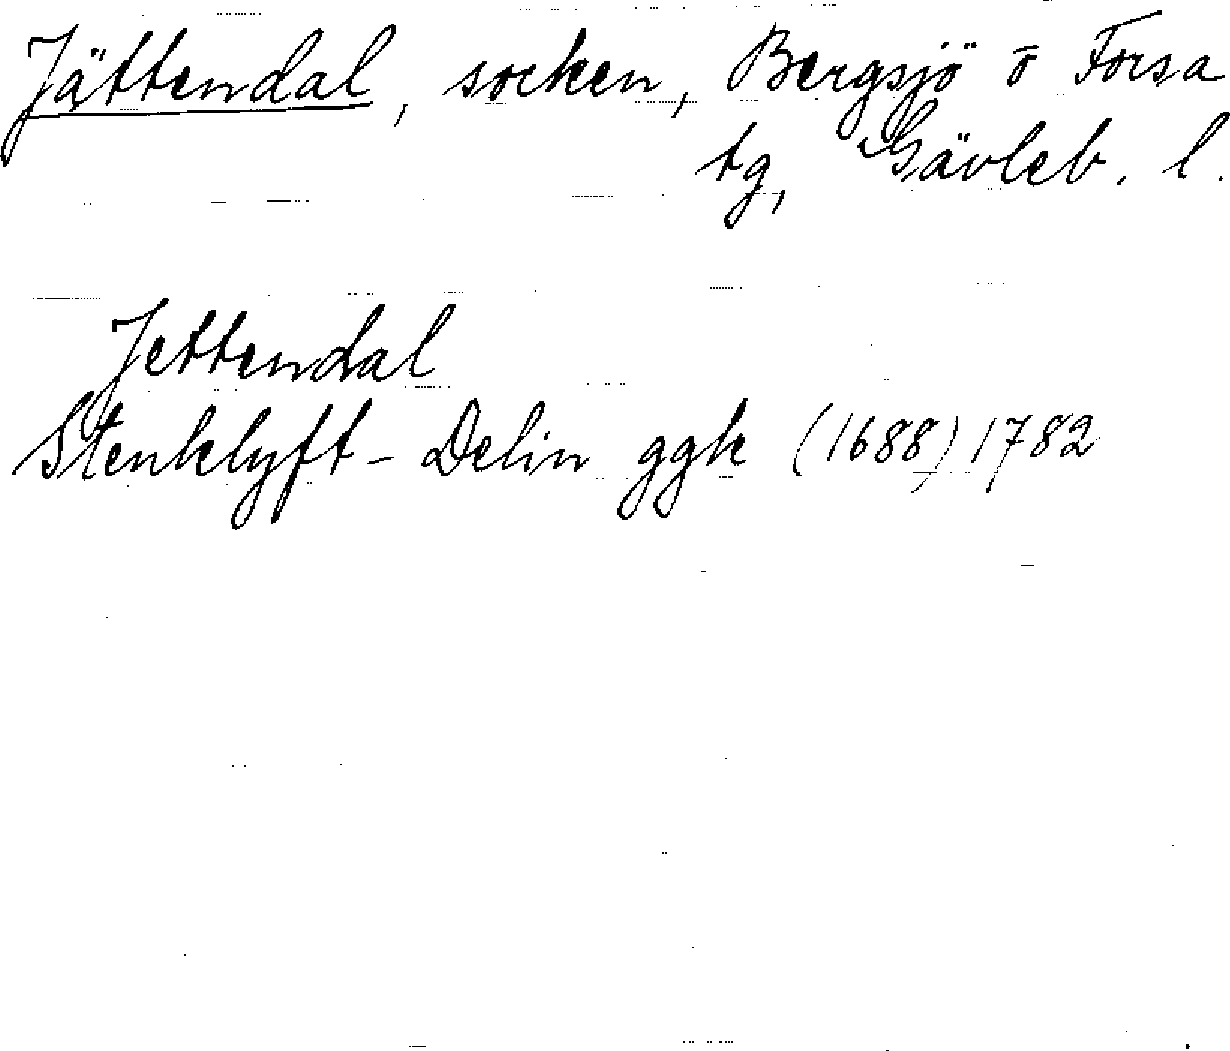 Jättendal, socken, Bergsjö o Forsa
tg, Gävleb. l.
Jettendal
Stenklyft - Delin ggk (1688) 1782